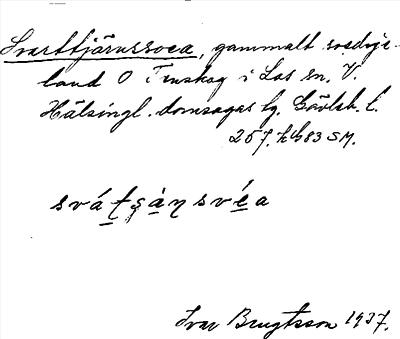 Svarttjärnssvea, gammalt svedje-
land O Tenskog i Los sn, V.
Hälsingl. domsagas tg. Gävleb. l.
257. hbl 83 SM.
svátșàṇ svéa
Ivar Bengtsson 1937.